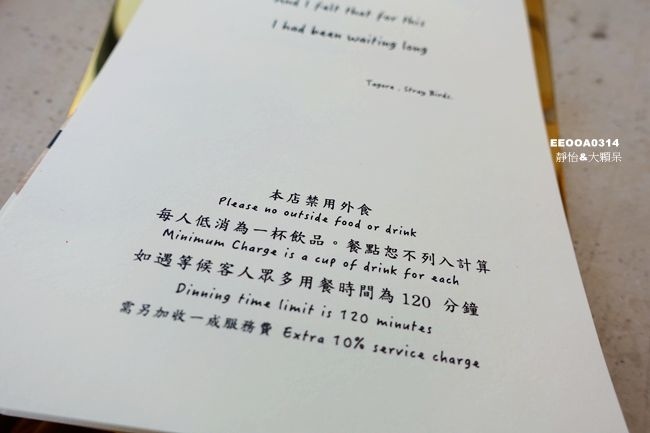 And I felt that for this
I had been waiting long
Tagore . Stray Birds.
EEOOA0314
靜怡&大顆呆
本店禁用外食
Please no outside food or drink
每人低消為一杯飲品。餐點恕不列入計算
Minimum Charge is a cup of drink for each
如遇等候客人眾多用餐時間為 120 分鐘
Dinning time limit is 120 minutes
需另加收一成服務費 Extra 10% service charge